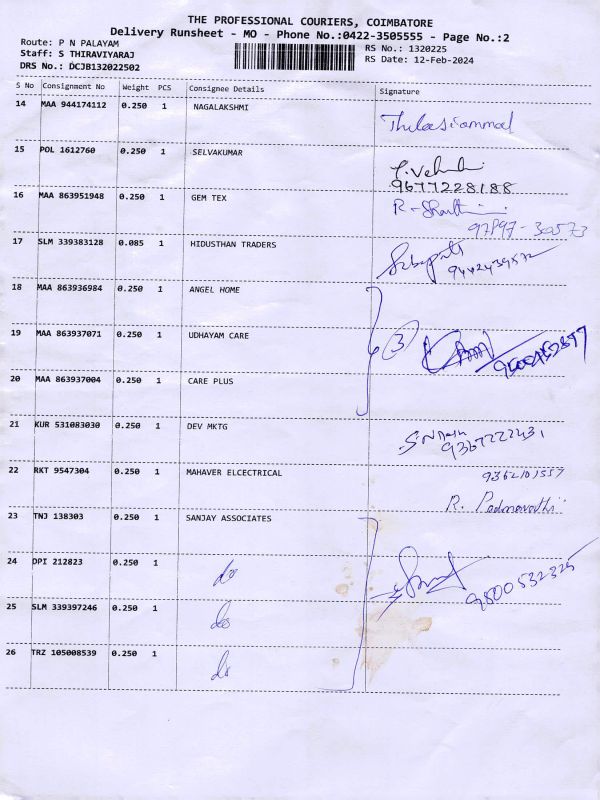 THE PROFESSIONAL COURIERS, COIMBATORE
Delivery Runsheet - MO - Phone No.:0422-3505555 - Page No.:2
Route: P N PALAYAM
RS No.: 1320225
Staff: S THIRAVIYARAJ
RS Date: 12-Feb-2024
DRS No.: DCJB132022502
S No Consignment No Weight PCS Consignee Details Signature
14 MAA 944174112 0.250 1 NAGALAKSHMI
15 POL 1612760 0.250 1 SELVAKUMAR
9677228188
16 MAA 863951948 0.250 1 GEM TEX
97897-30573
17 SLM 339383128 0.085 1 HIDUSTHAN TRADERS
18 MAA 863936984 0.250 1 ANGEL HOME
19 MAA 863937071 0.250 1 UDHAYAM CARE
3
20 MAA 863937004 0.250 1 CARE PLUS
21 KUR 531083030 0.250 1 DEV MKTG
9367222431
22 RKT 9547304 0.250 1 MAHAVER ELCECTRICAL
R. Padmavathi
23 TNJ 138303 0.250 1 SANJAY ASSOCIATES
24 DPI 212823 0.250 1 do
25 SLM 339397246 0.250 1 do
26 TRZ 105008539 0.250 1 do